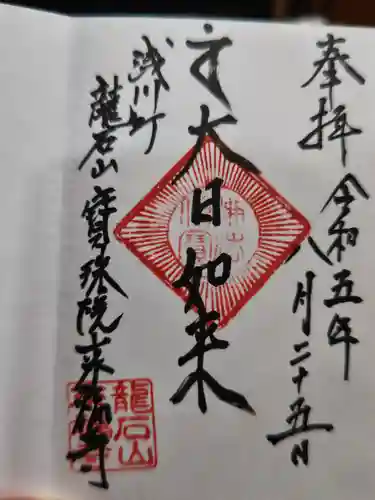 奉拝 令和五年
八月二十五日
大日如来
浅川町
龍石山 寶珠院 来福寺
龍石山